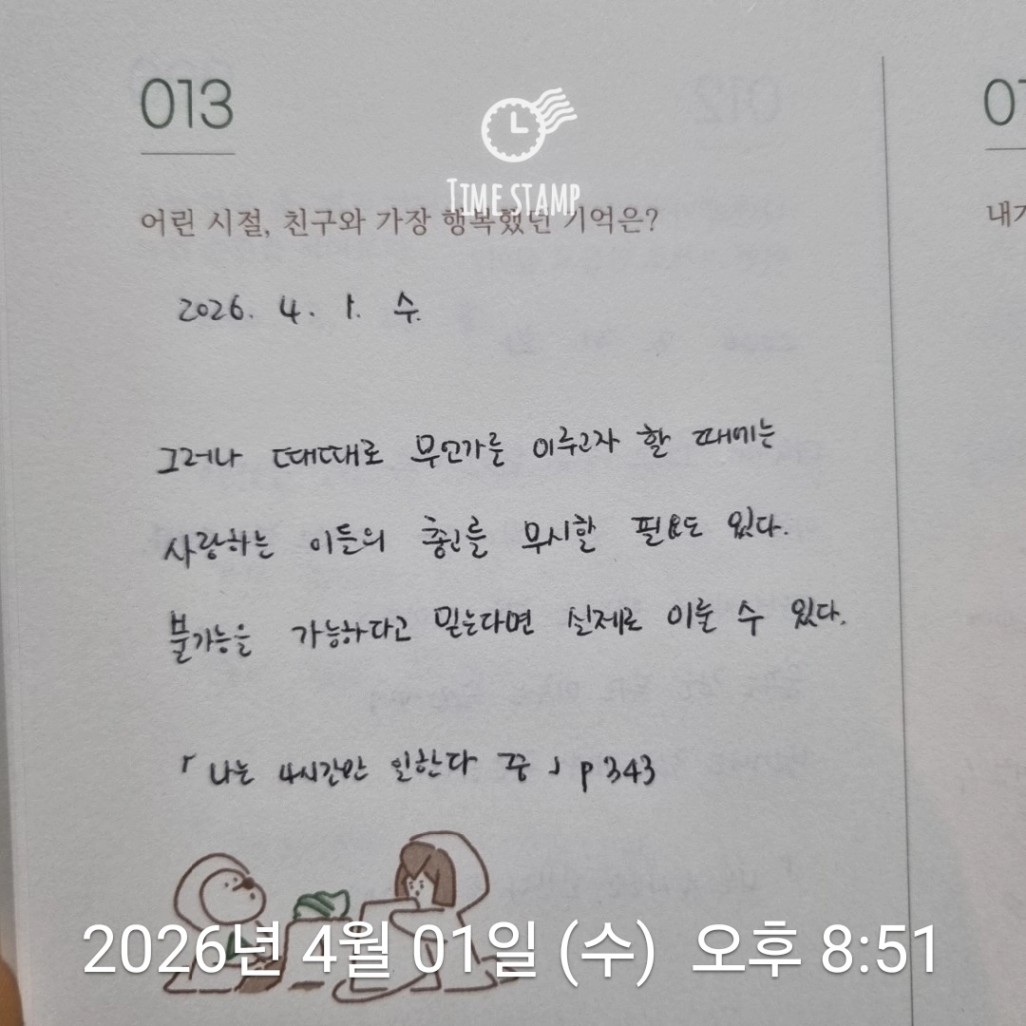 013
TIME STAMP
어린 시절, 친구와 가장 행복했던 기억은?
2026. 4. 1. 수.
그러나 때때로 무언가를 이루고자 할 때에는
사랑하는 이들의 충고를 무시할 필요도 있다.
불가능을 가능하다고 믿는다면 실제로 이룰 수 있다.
「나는 4시간만 일한다 중」 p 343
2026년 4월 01일 (수) 오후 8:51